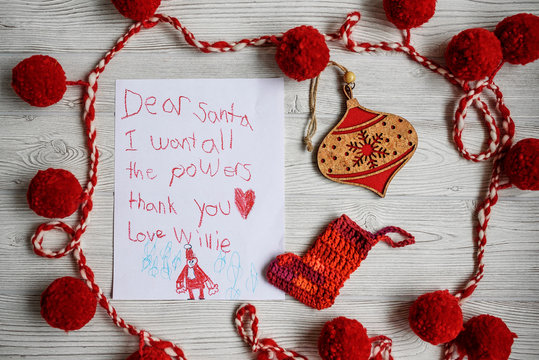 Dear Santa
I want all
the powers
thank you
Love Willie